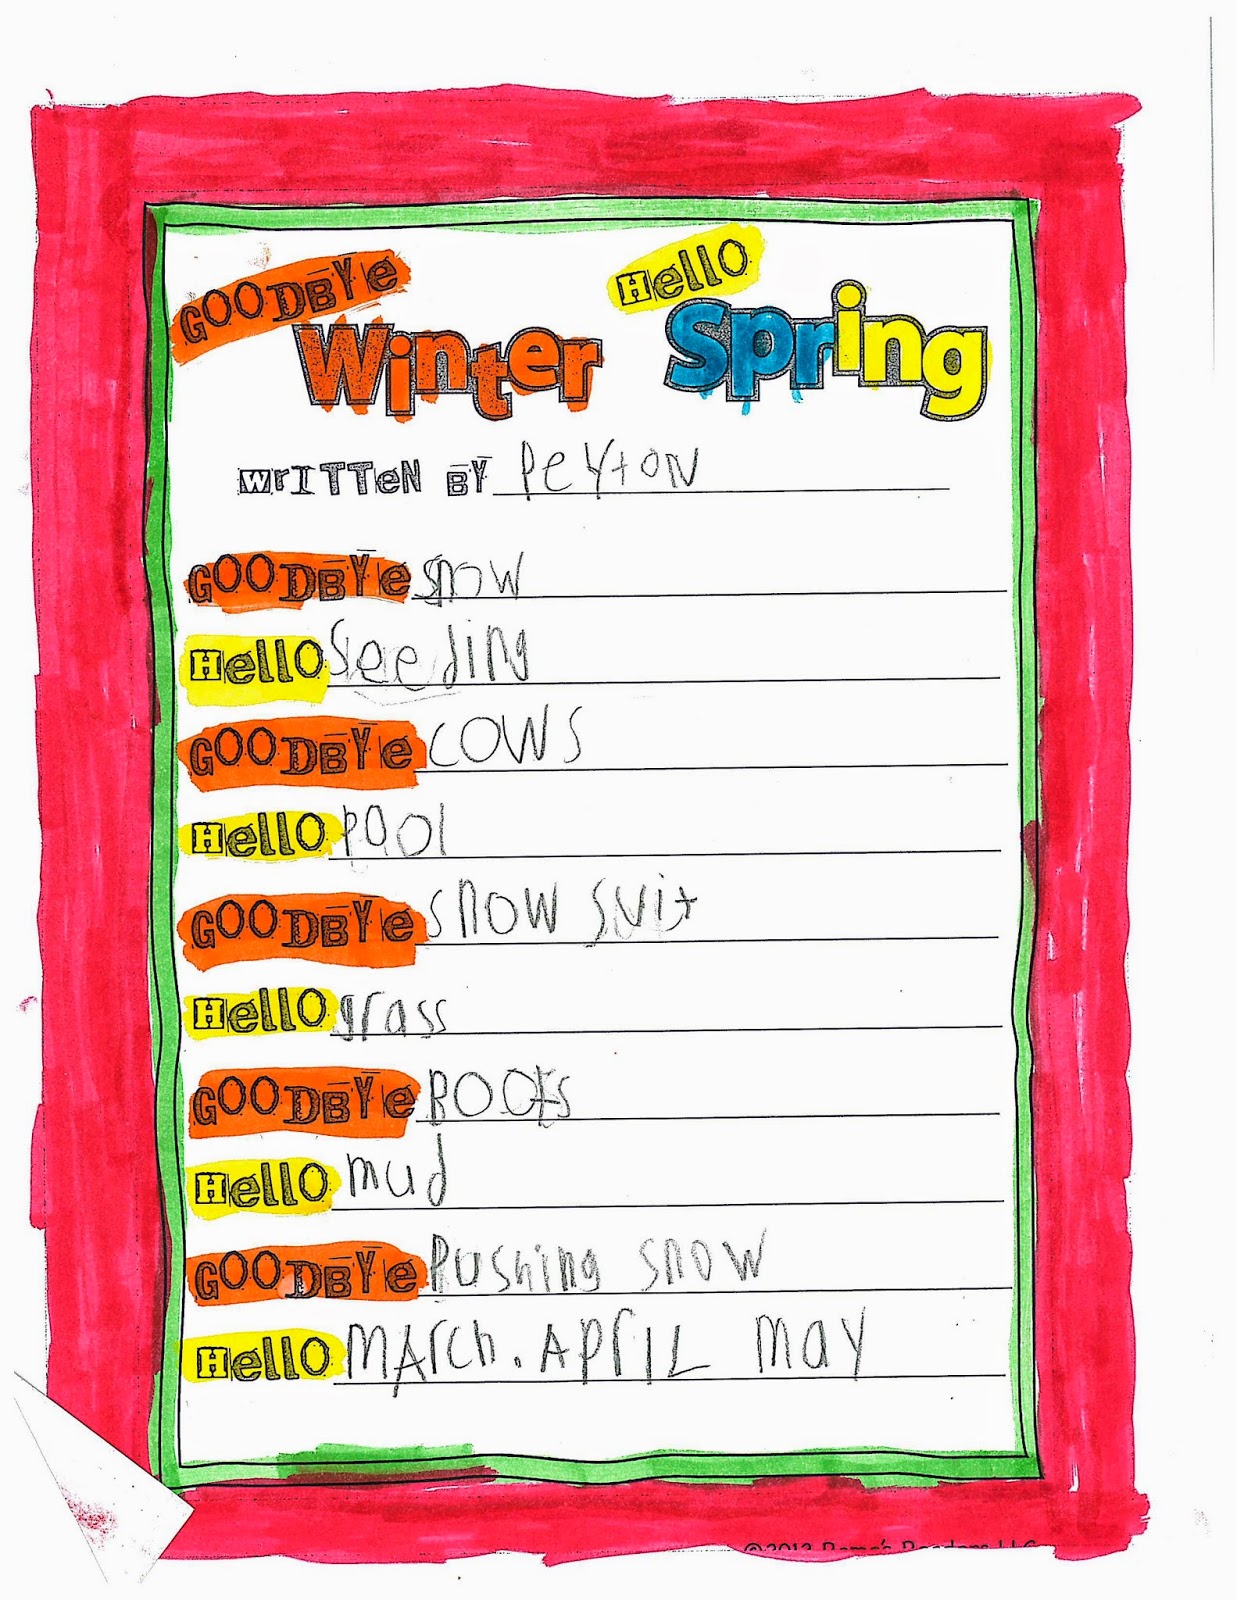 GOODBYe Hello
Winter Spring
WrITTeN BY PeYtoN
GOODBYe snow
Hello Seeding
GOODBYe COWS
Hello pool
GOODBYe snow suit
Hello grass
GOODBYe BOOts
Hello mud
GOODBYe Pushing snow
Hello MArch. APrIL may